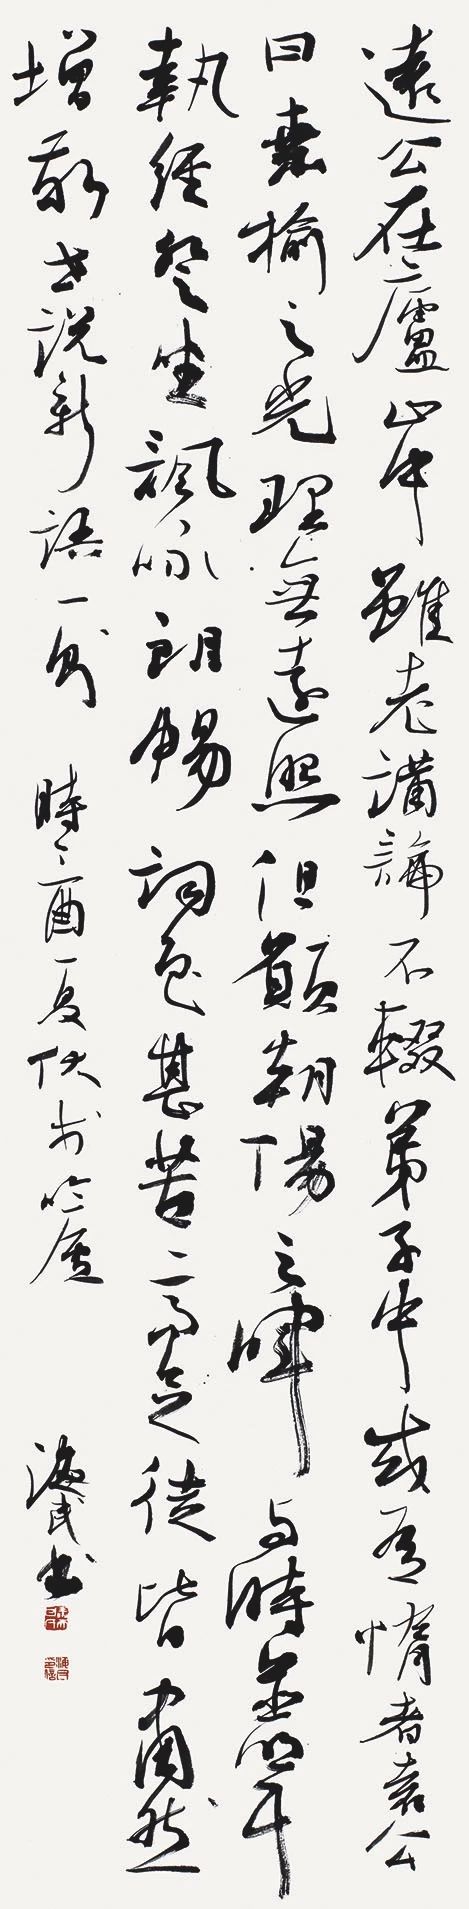 遠公在廬山中雖老講論不輟弟子中或有惰者遠公
曰桑榆之光理無遠照但願朝陽之暉與時並明耳
執經登坐諷詠朗暢詞色甚苦高足徒皆肅然
增敬世說新語一則 時乙酉夏伏於吟廬 海民書